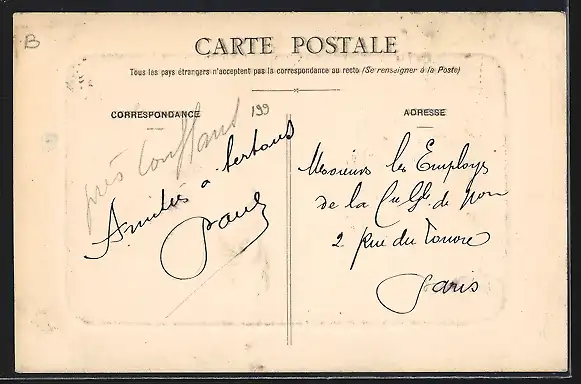 B
CARTE POSTALE
Tous les pays étrangers n'acceptent pas la correspondance au recto (Se renseigner à la Poste)
CORRESPONDANCE
199
ADRESSE
près Conflans
Amitiés à tertous
Paul
Messieurs les Employés
de la Cie Gle de
2 Rue du Louvre
Paris